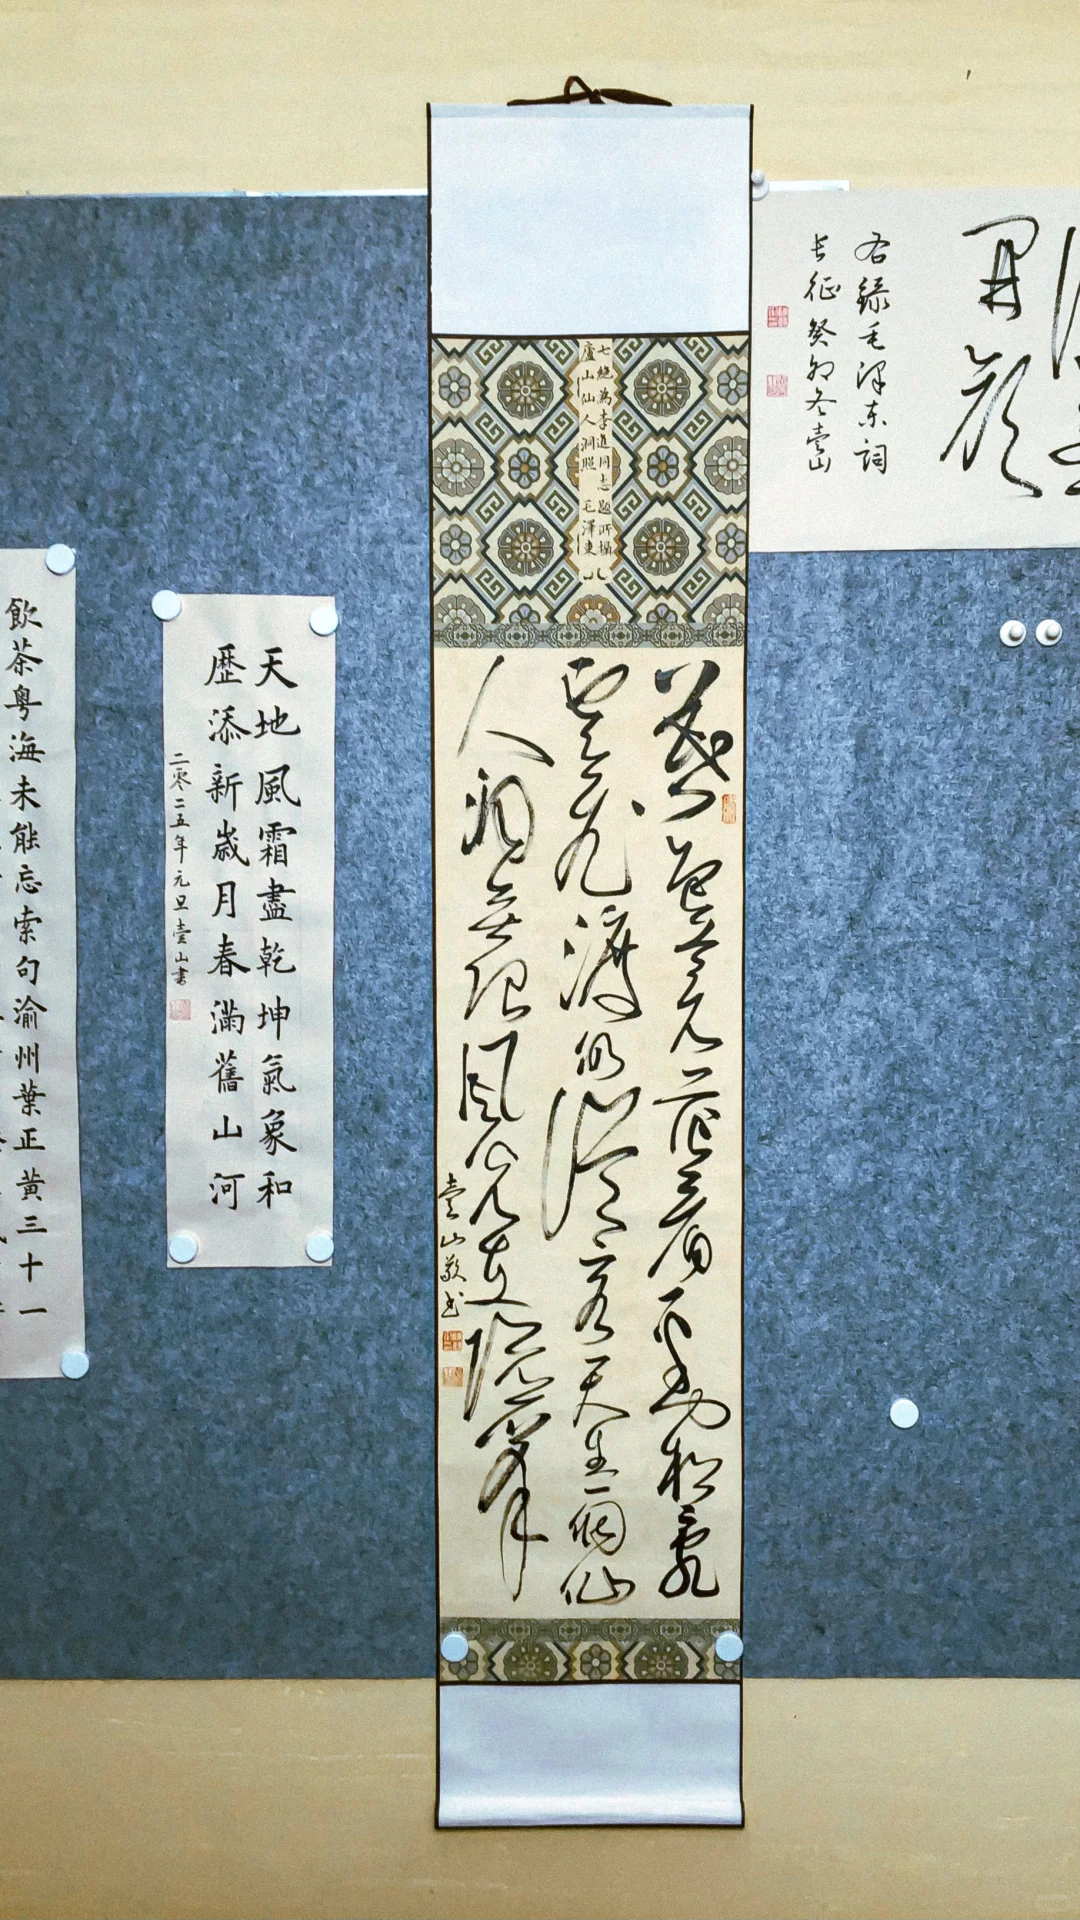 開顏
右錄毛澤東詞
長征 癸卯冬壹山
七絕為李進同志題所攝
廬山仙人洞照 毛澤東
暮色蒼茫看勁松亂
雲飛渡仍從容天生一個仙
人洞無限風光在險峰
壹山敬書
天地風霜盡乾坤氣象和
歷添新歲月春滿舊山河
二零二五年元旦壹山書
飲茶粵海未能忘索句渝州葉正黃三十一